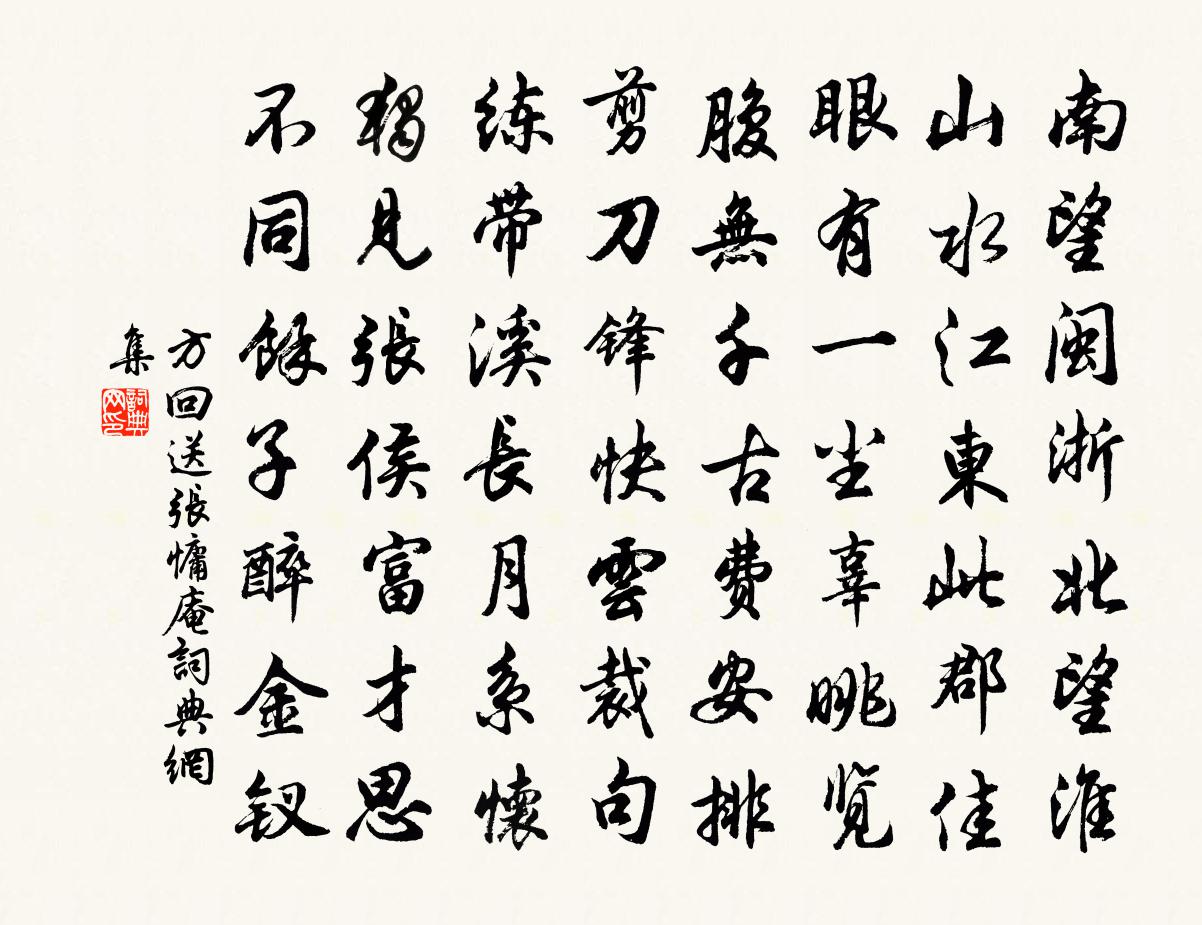 南望闽浙北望淮
山水江东此郡佳
眼有一坐辜眺览
腹無千古费安排
剪刀锋快雲裁句
练带溪長月系懷
独见張侯富才思
不同馀子醉金钗
方回送張慵庵詞典網
集
詞典網印